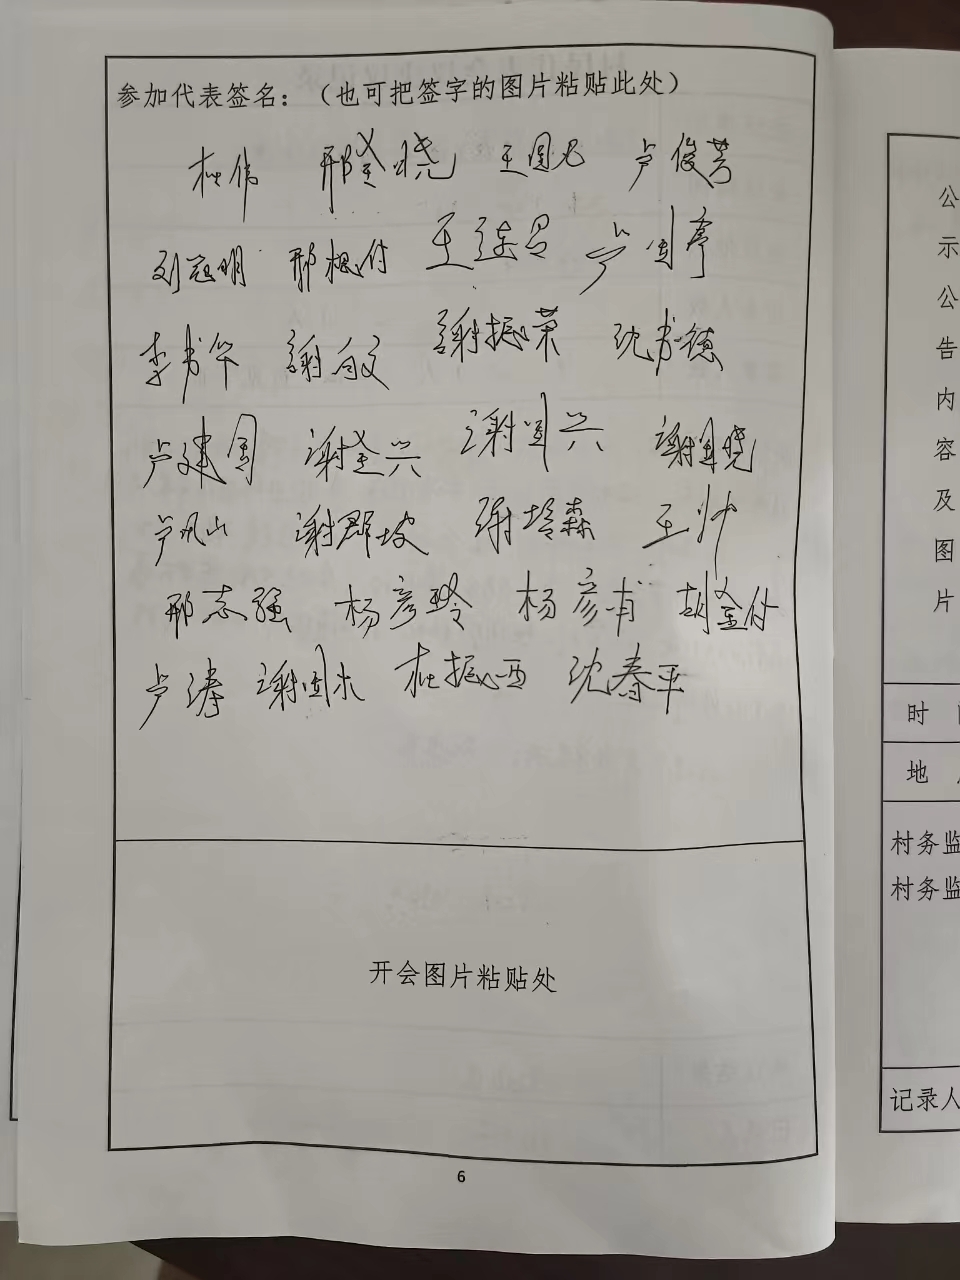 参加代表签名：（也可把签字的图片粘贴此处）
杜伟 邢 晓 王国 卢俊芳
刘冠明 邢根付 王连召 卢国亭
李书华 謝向文 謝振荣 沈书德
卢建国 谢 兴 谢国兴 谢国晓
卢凤山 谢群坡 谢培森 王帅
邢志强 杨彦玲 杨彦甫 胡 付
卢涛 谢国木 杜振西 沈春平
开会图片粘贴处
6
公示公告内容及图片
时
地
村务监
村务监
记录人